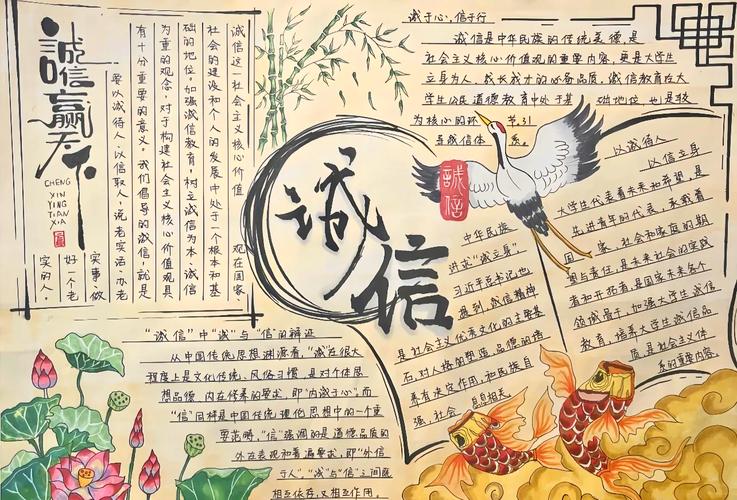 誠信赢天下
CHENG
XIN
YING
TIAN
XIA
诚信这一社会主义核心价值 观在国家
社会的建设和个人的发展中处于一个根本和基
础的地位,加强诚信教育,树立诚信为本、诚信
为重的观念,对于构建社会主义核心价值观具
有十分重要的意义。我们倡导的诚信,就是
要以诚待人、以信取人,说老实话、办老
实事、做
好一个老
实的人。
诚于心,信于行
诚信是中华民族的传统美德,是
社会主义核心价值观的重要内容,更是大学生
立身为人、成长成才的必备品质,诚信教育在大
学生公民道德教育中处于基 础地位,也是较
为核心的环 节。31
与诚信体 系。
誠信
诚信
以诚待人
以信立身
大学生代表着未来和希望,是
出进青年的代表,承载着
国 家、社会和家庭的期
望与责任,是未来社会的实践
者和开拓者,是国家未来各个
领域骨干,加强大学生诚信
教育,培养大学生诚信品
质,是社会主义体
系的重要内容。
中华民族
讲求"诚立身"
习近平总书记也
提到,诚信精神
是社会主义优秀文化的主要基
石,对人格的塑造、品德的培
养有决定作用,和民族自
强、社会 息息相关。
"诚信"中"诚"与"信"的辩证
从中国传统思想渊源看,"诚"在很大
程度上是文化传统、风俗习惯,是对个体思
想品德、内在修养的要求,即"内诚于心",而
"信"同样是中国传统理化思想中的一个重
要范畴,"信"强调的是道德品质的
外在表现和普遍要求,即"外信
于人","诚"与"信"之间既
相互依存,又相互作用。